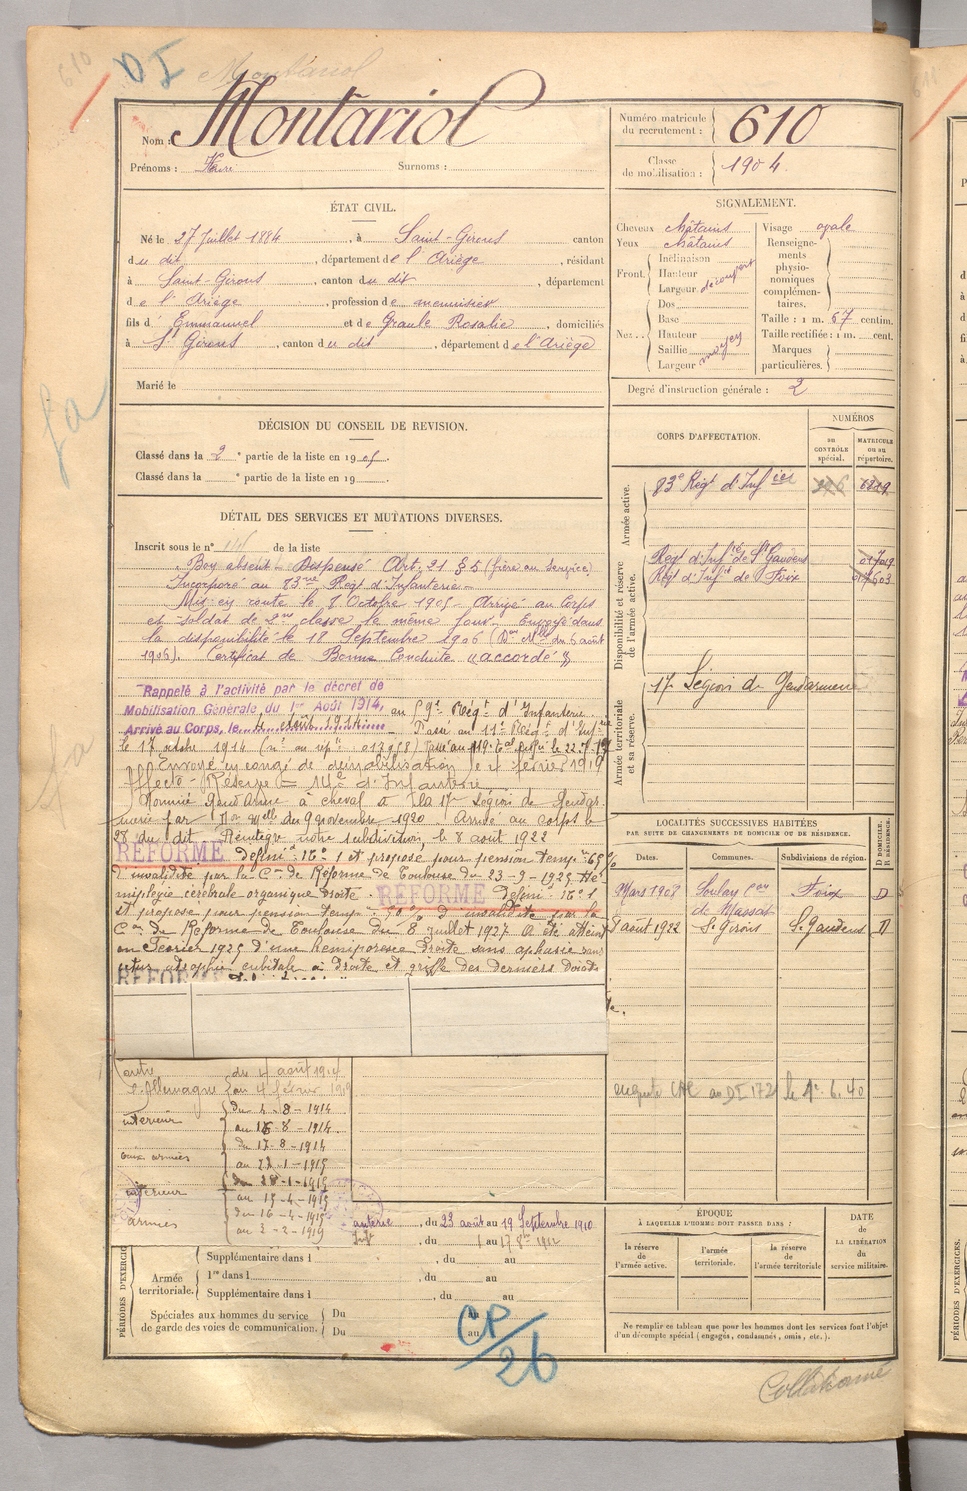 610
DI Montariol
Nom : Montariol
Prénoms : Surnoms :
Numéro matricule du recrutement : 610
Classe de mobilisation : 1904
ÉTAT CIVIL.
Né le 27 Juillet 1884, à Saint-Girons canton
du dit, département de l'Ariège, résidant
à Saint-Girons, canton du dit département
de l'Ariège, profession de menuisier
fils d' Emmanuel et de Graule Rosalie, domiciliés
à St Girons, canton du dit, département de l'Ariège
Marié le
SIGNALEMENT.
Cheveux châtains
Yeux châtains
Front. Inclinaison
Hauteur
Largeur découvert
Nez. Dos
Base
Hauteur
Saillie
Largeur moyen
Visage ovale
Renseignements physionomiques complémentaires.
Taille : 1 m. 67 centim.
Taille rectifiée : 1 m. cent.
Marques particulières.
Degré d'instruction générale : 2
DÉCISION DU CONSEIL DE REVISION.
Classé dans la 2e partie de la liste en 1905.
Classé dans la e partie de la liste en 19
DÉTAIL DES SERVICES ET MUTATIONS DIVERSES.
Inscrit sous le n° de la liste
Bon absent. Dispensé Art. 21 § 5 (frère au service)
Incorporé au 83me Régt d'Infanterie.
Mis en route le 8 Octobre 1905. Arrivé au Corps
et soldat de 2me classe le même jour. Envoyé dans
la disponibilité le 18 Septembre 1906 (Don Mlle du 6 août
1906). Certificat de Bonne Conduite "accordé"
Rappelé à l'activité par le décret de
Mobilisation Générale du 1er Août 1914, au 59e Régt d'Infanterie
Arrivé au Corps, le 4 août 1914. Passé au 11e Régt d'Infrie
le 17 octobre 1914
Envoyé en congé de démobilisation le 4 février 1919
Affecté Réserve d'Infanterie
Nommé Gendarme à cheval à la 17e Légion de Gendarmerie
par Don Mlle du 9 novembre 1920 Arrivé au corps le
28 du dit. Réintègre notre subdivision, le 8 août 1922
RÉFORMÉ défini n° 1 et proposé pour pension tempre 65 %
d'invalidité par la Con de Réforme de Toulouse du 23-9-1925 Hé
miplégie cérébrale organique droite. RÉFORMÉ défini n° 1
et proposé pour pension temp. 90 % d'invalidité par la
Con de Réforme de Toulouse du 8 juillet 1927 a été atteint
en Février 1925 d'une hémiparésie droite sans aphasie
atrophie cubitale à droite et griffe des derniers doigts
RÉFORMÉ
CORPS D'AFFECTATION.
NUMÉROS
au CONTRÔLE spécial.
MATRICULE ou au répertoire.
Armée active.
83e Régt d'Infrie
Disponibilité et réserve de l'armée active.
Régt d'Infrie de St Gaudens
Régt d'Infrie de Foix
Armée territoriale et sa réserve.
17e Légion de Gendarmerie
LOCALITÉS SUCCESSIVES HABITÉES
PAR SUITE DE CHANGEMENTS DE DOMICILE OU DE RÉSIDENCE.
Dates. Communes. Subdivisions de région. D DOMICILE. R RÉSIDENCE.
Mars 1908 Soulan Con de Massat Foix D
8 août 1922 St Girons St Gaudens D
DI 172 le 1.6.40
contre l'Allemagne du 4 août 1914 au 4 février 1919
intérieur du 4-8-1914 au 16-8-1914.
aux armées du 17-8-1914 au 27-1-1915
intérieur du 28-1-1915 au 15-4-1915
armées du 16-4-1915 au 2-2-1919
du 23 août au 19 Septembre 1910
du 1 au 17 8bre 1912
PÉRIODES D'EXERCIC
Armée territoriale.
Supplémentaire dans l , du au
1re dans l , du au
Supplémentaire dans l , du au
Spéciales aux hommes du service de garde des voies de communication. Du au
Du au
CP/26
ÉPOQUE
À LAQUELLE L'HOMME DOIT PASSER DANS :
la réserve de l'armée active.
l'armée territoriale.
la réserve de l'armée territoriale
DATE de LA LIBÉRATION du service militaire.
Ne remplir ce tableau que pour les hommes dont les services font l'objet
d'un décompte spécial (engagés, condamnés, omis, etc.).
Collationné